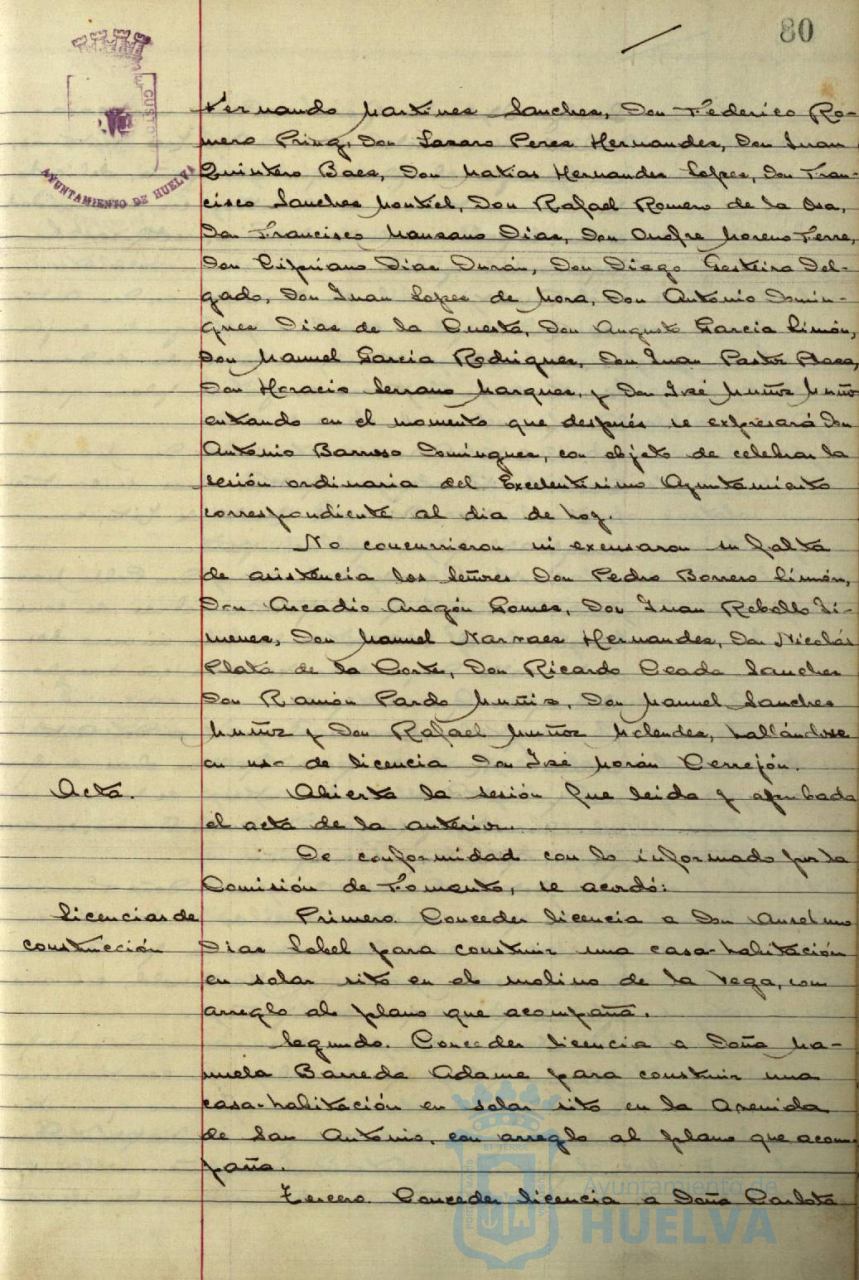 80
AYUNTAMIENTO DE HUELVA
Fernando Martines Sanches, Don Federico Ro-
mero Pring, Don Lazaro Peres Hernandes, Don Juan
Quintero Baes, Don Matias Hernandes Lopes, Don Fran-
cisco Sanches Montiel, Don Rafael Romero de la Osa,
Don Francisco Mansano Dias, Don Onofre Moreno Ferre,
Don Cipriano Dias Durán, Don Diego Gesteira Del-
gado, Don Juan Lopes de Mora, Don Antonio Domin-
gues Dias de la Cuesta, Don Augusto Garcia Limón,
Don Manuel Garcia Rodrigues, Don Juan Pastor Plaza,
Don Horacio Serrano Marques, y Don José Muñoz Muñoz
entrando en el momento que después se expresará Don
Antonio Barroso Domingues, con objeto de celebrar la
sesión ordinaria del Excelentisimo Ayuntamiento
correspondiente al dia de hoy.
No concurrieron ni excusaron su falta
de asistencia los Señores Don Pedro Borrero Limón,
Don Arcadio Aragón Gomes, Don Juan Rebollo Ji-
menes, Don Manuel Narvaes Hernandes, Don Nicolás
Plata de la Corte, Don Ricardo Ceada Sanches
Don Ramón Pardo Muñiz, Don Manuel Sanches
Muñoz y Don Rafael Muñoz Melendes, hallándose
en uso de licencia Don José Morán Cerrejón.
Acta. Abierta la sesión fue leida y aprobada
el acta de la anterior.
De conformidad con lo informado por la
Comisión de Fomento, se acordó:
Licencias de Primero. Conceder licencia a Don Anselmo
construcción Dias para construir una casa-habitación
en solar sito en el molino de la Vega, con
arreglo al plano que acompaña.
Segundo. Conceder licencia a Doña Ma-
nuela Barreda Adame para construir una
casa-habitación en solar sito en la Avenida
de San Antonio, con arreglo al plano que acom-
paña.
Tercero. Conceder licencia a Doña Carlota
Ayuntamiento de
HUELVA